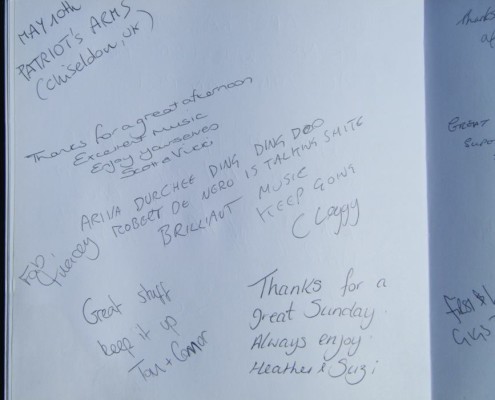 MAY 10th
PATRIOT'S ARMS
(Chiseldon, UK)
Thanks for a great afternoon
Excellent music
Enjoy yourselves
Scott & Vicki
ARIVA DURCHEE DING DING DOO
ROBERT DE NERO IS TALKING SHITE
BRILLIANT MUSIC
KEEP GOING
Cloggy
FAB.
Great stuff
keep it up
Tom + Connor
Thanks for a
great Sunday.
Always enjoy.
Heather & Suzi
Thanks
GREAT
GIGS